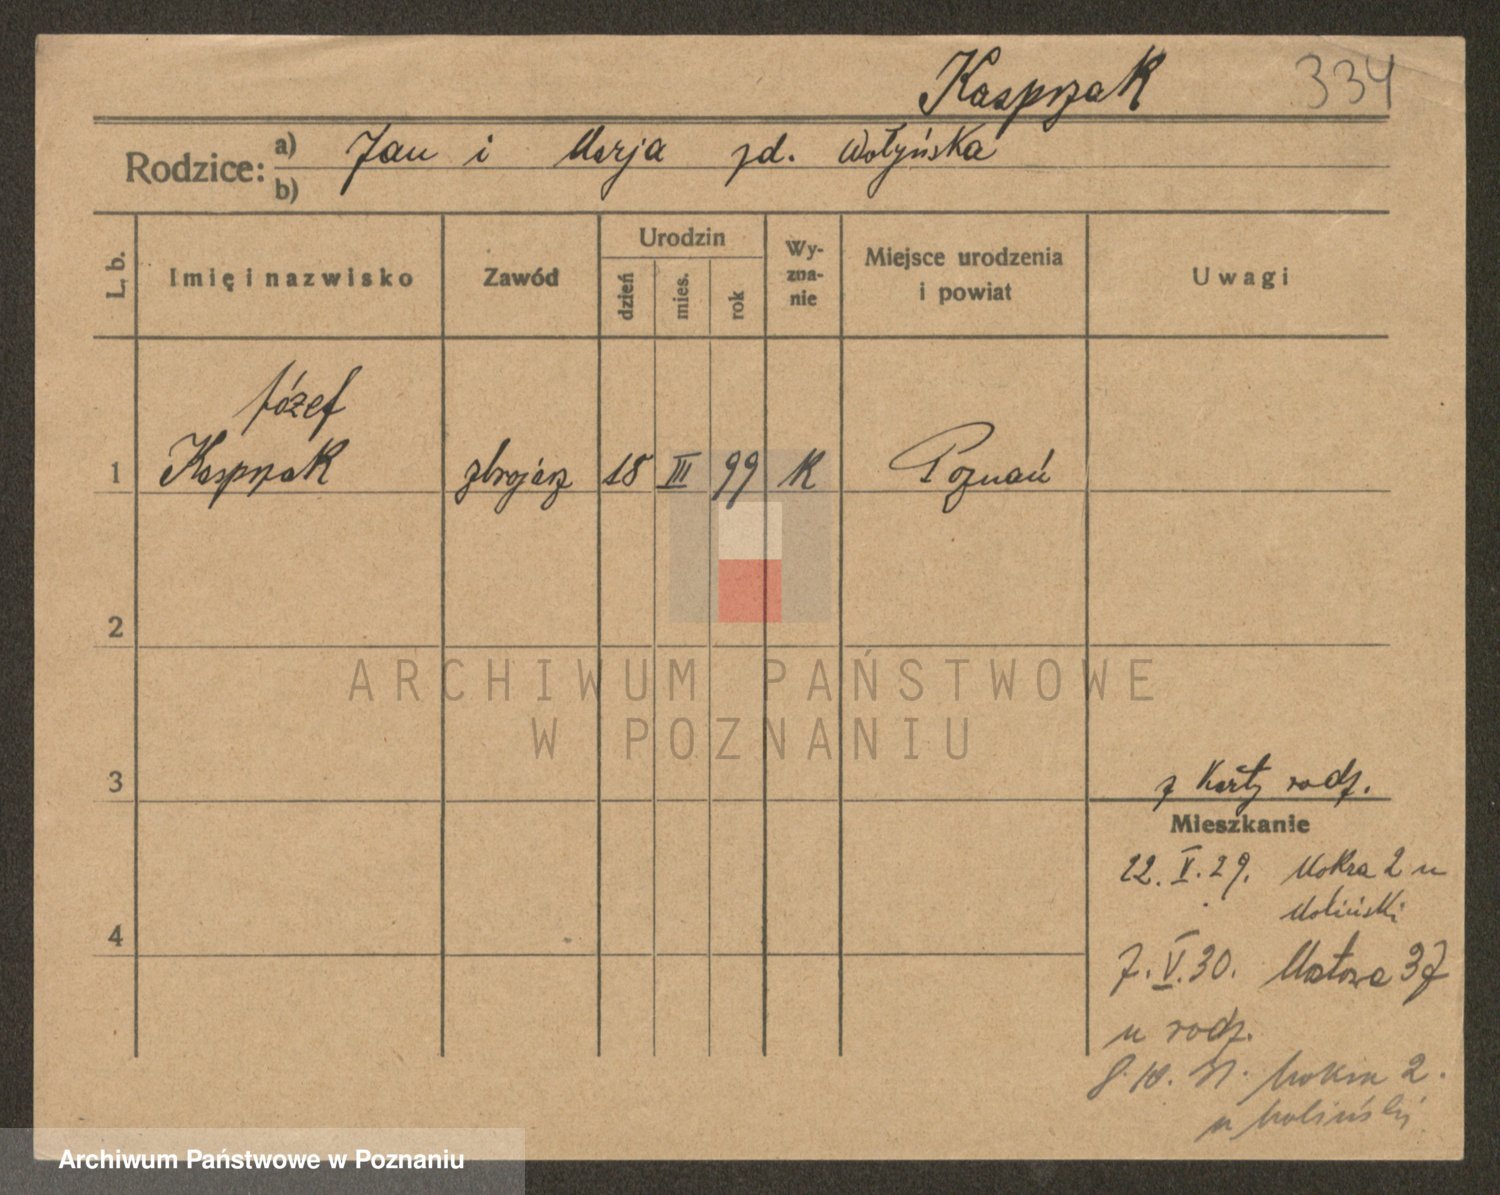 Kasprzak 334
Rodzice: a) Jan i Marja zd. Wołyńska
b)
L. b. Imię i nazwisko Zawód Urodzin dzień mies. rok Wyznanie Miejsce urodzenia i powiat Uwagi
Józef
1 Kasprzak zbrojarz 18 III 99 K Poznań
2
ARCHIWUM PAŃSTWOWE
W POZNANIU
3
z Karty rodz.
Mieszkanie
22. V. 29. Mokra 2 u
Moliński
4
7. V. 30. 37
u rodz.
8. 10. 31. Mokra 2.
u Moliński
Archiwum Państwowe w Poznaniu